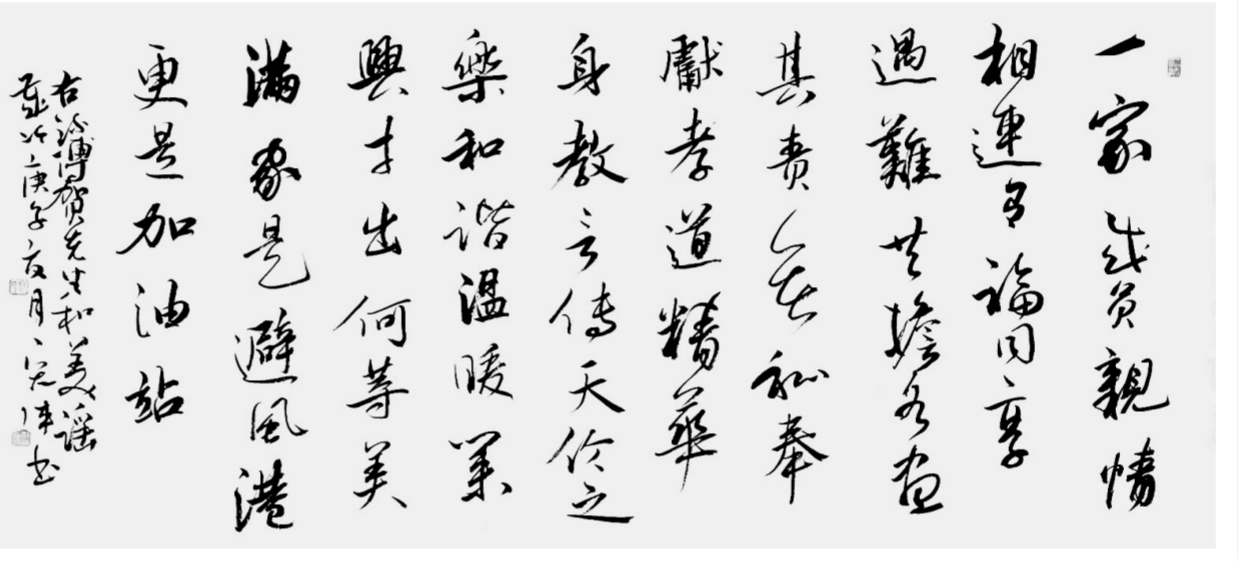 一家成員親情
相連有福同享
遇難共擔各盡
其责無私奉
獻孝道精華
身教言傳天倫之
樂和諧溫暖業
興才出何等美
滿家是避風港
更是加油站
右錄傅贺先生和美謠
歲次庚子夏月书